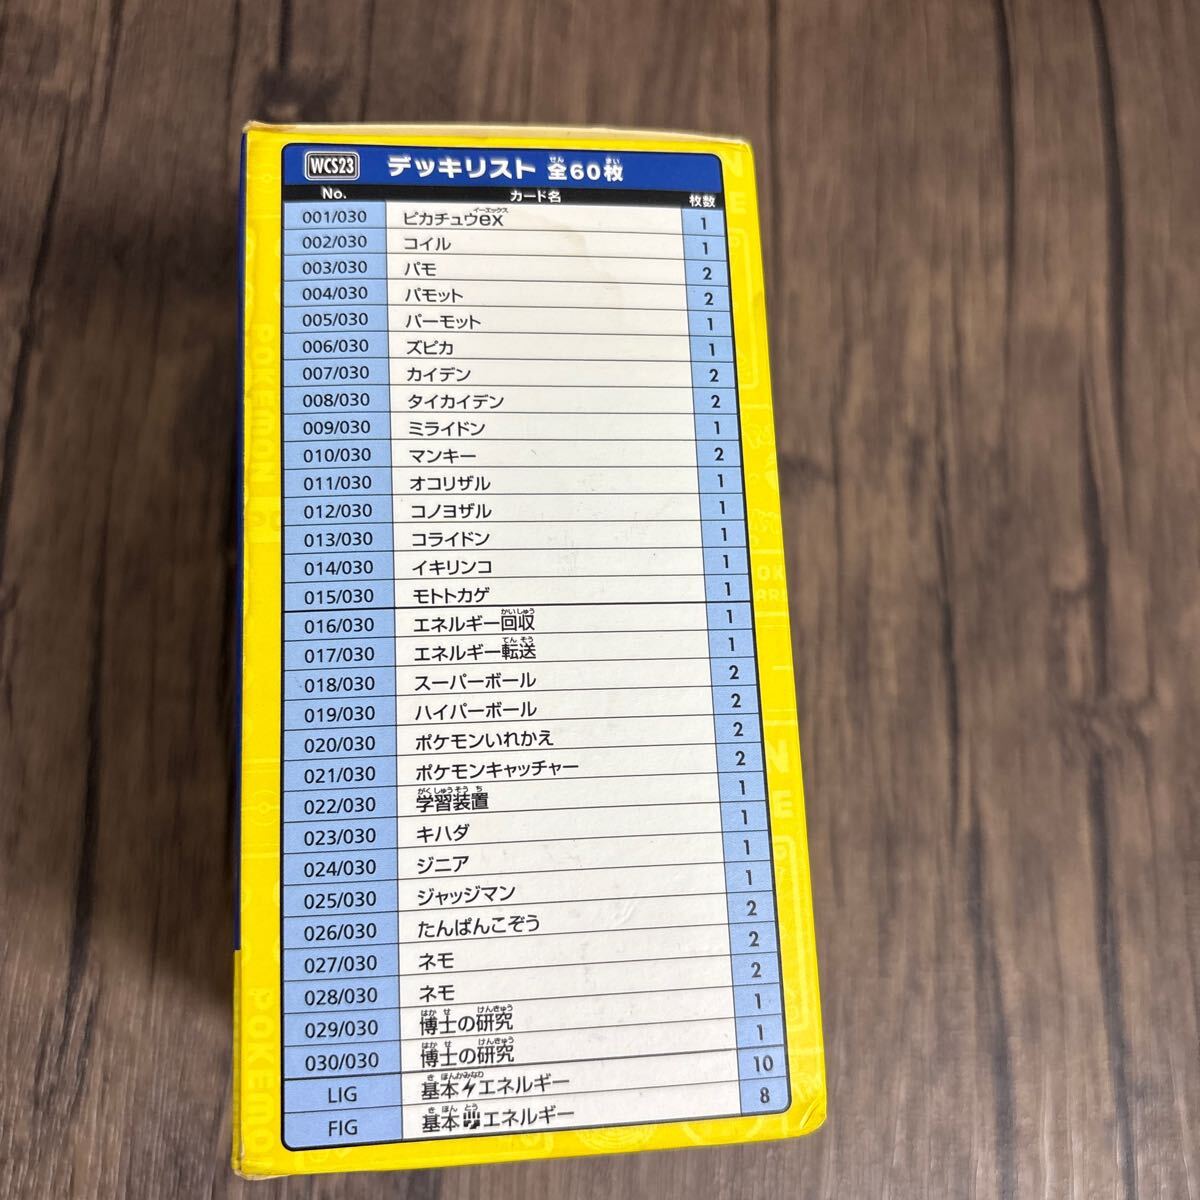 WCS23 デッキリスト 全60枚
せん まい
No. カード名 枚数
001/030 ピカチュウex 1
イーエックス
002/030 コイル 1
003/030 パモ 2
004/030 パモット 2
005/030 パーモット 1
006/030 ズピカ 1
007/030 カイデン 2
008/030 タイカイデン 2
009/030 ミライドン 1
010/030 マンキー 2
011/030 オコリザル 1
012/030 コノヨザル 1
013/030 コライドン 1
014/030 イキリンコ 1
015/030 モトトカゲ 1
016/030 エネルギー回収 1
かいしゅう
017/030 エネルギー転送 1
てんそう
018/030 スーパーボール 2
019/030 ハイパーボール 2
020/030 ポケモンいれかえ 2
021/030 ポケモンキャッチャー 2
022/030 学習装置 1
がくしゅうそうち
023/030 キハダ 1
024/030 ジニア 1
025/030 ジャッジマン 1
026/030 たんぱんこぞう 2
027/030 ネモ 2
028/030 ネモ 2
029/030 博士の研究 1
はかせ けんきゅう
030/030 博士の研究 1
はかせ けんきゅう
LIG 基本エネルギー 10
きほんかみなり
FIG 基本エネルギー 8
きほん とう
POKEMON
POKEMO